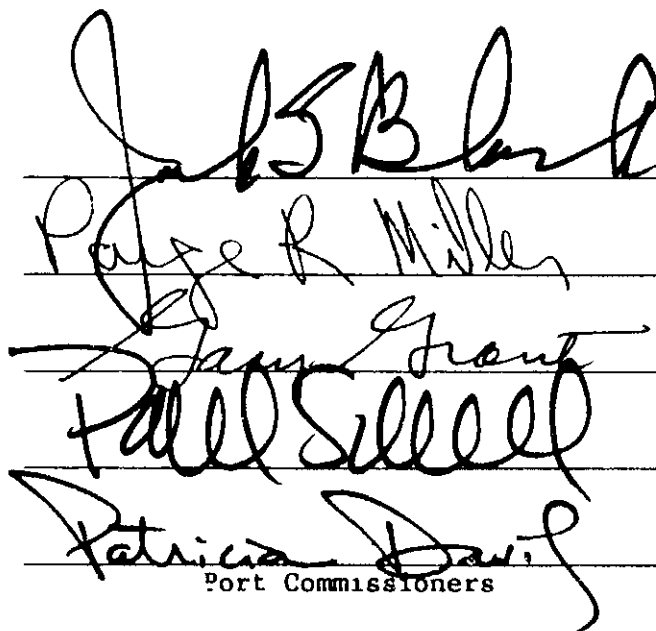 Jack S Block
Paige R Miller
Gary Grant
Pat
Patricia Davis
Port Commissioners